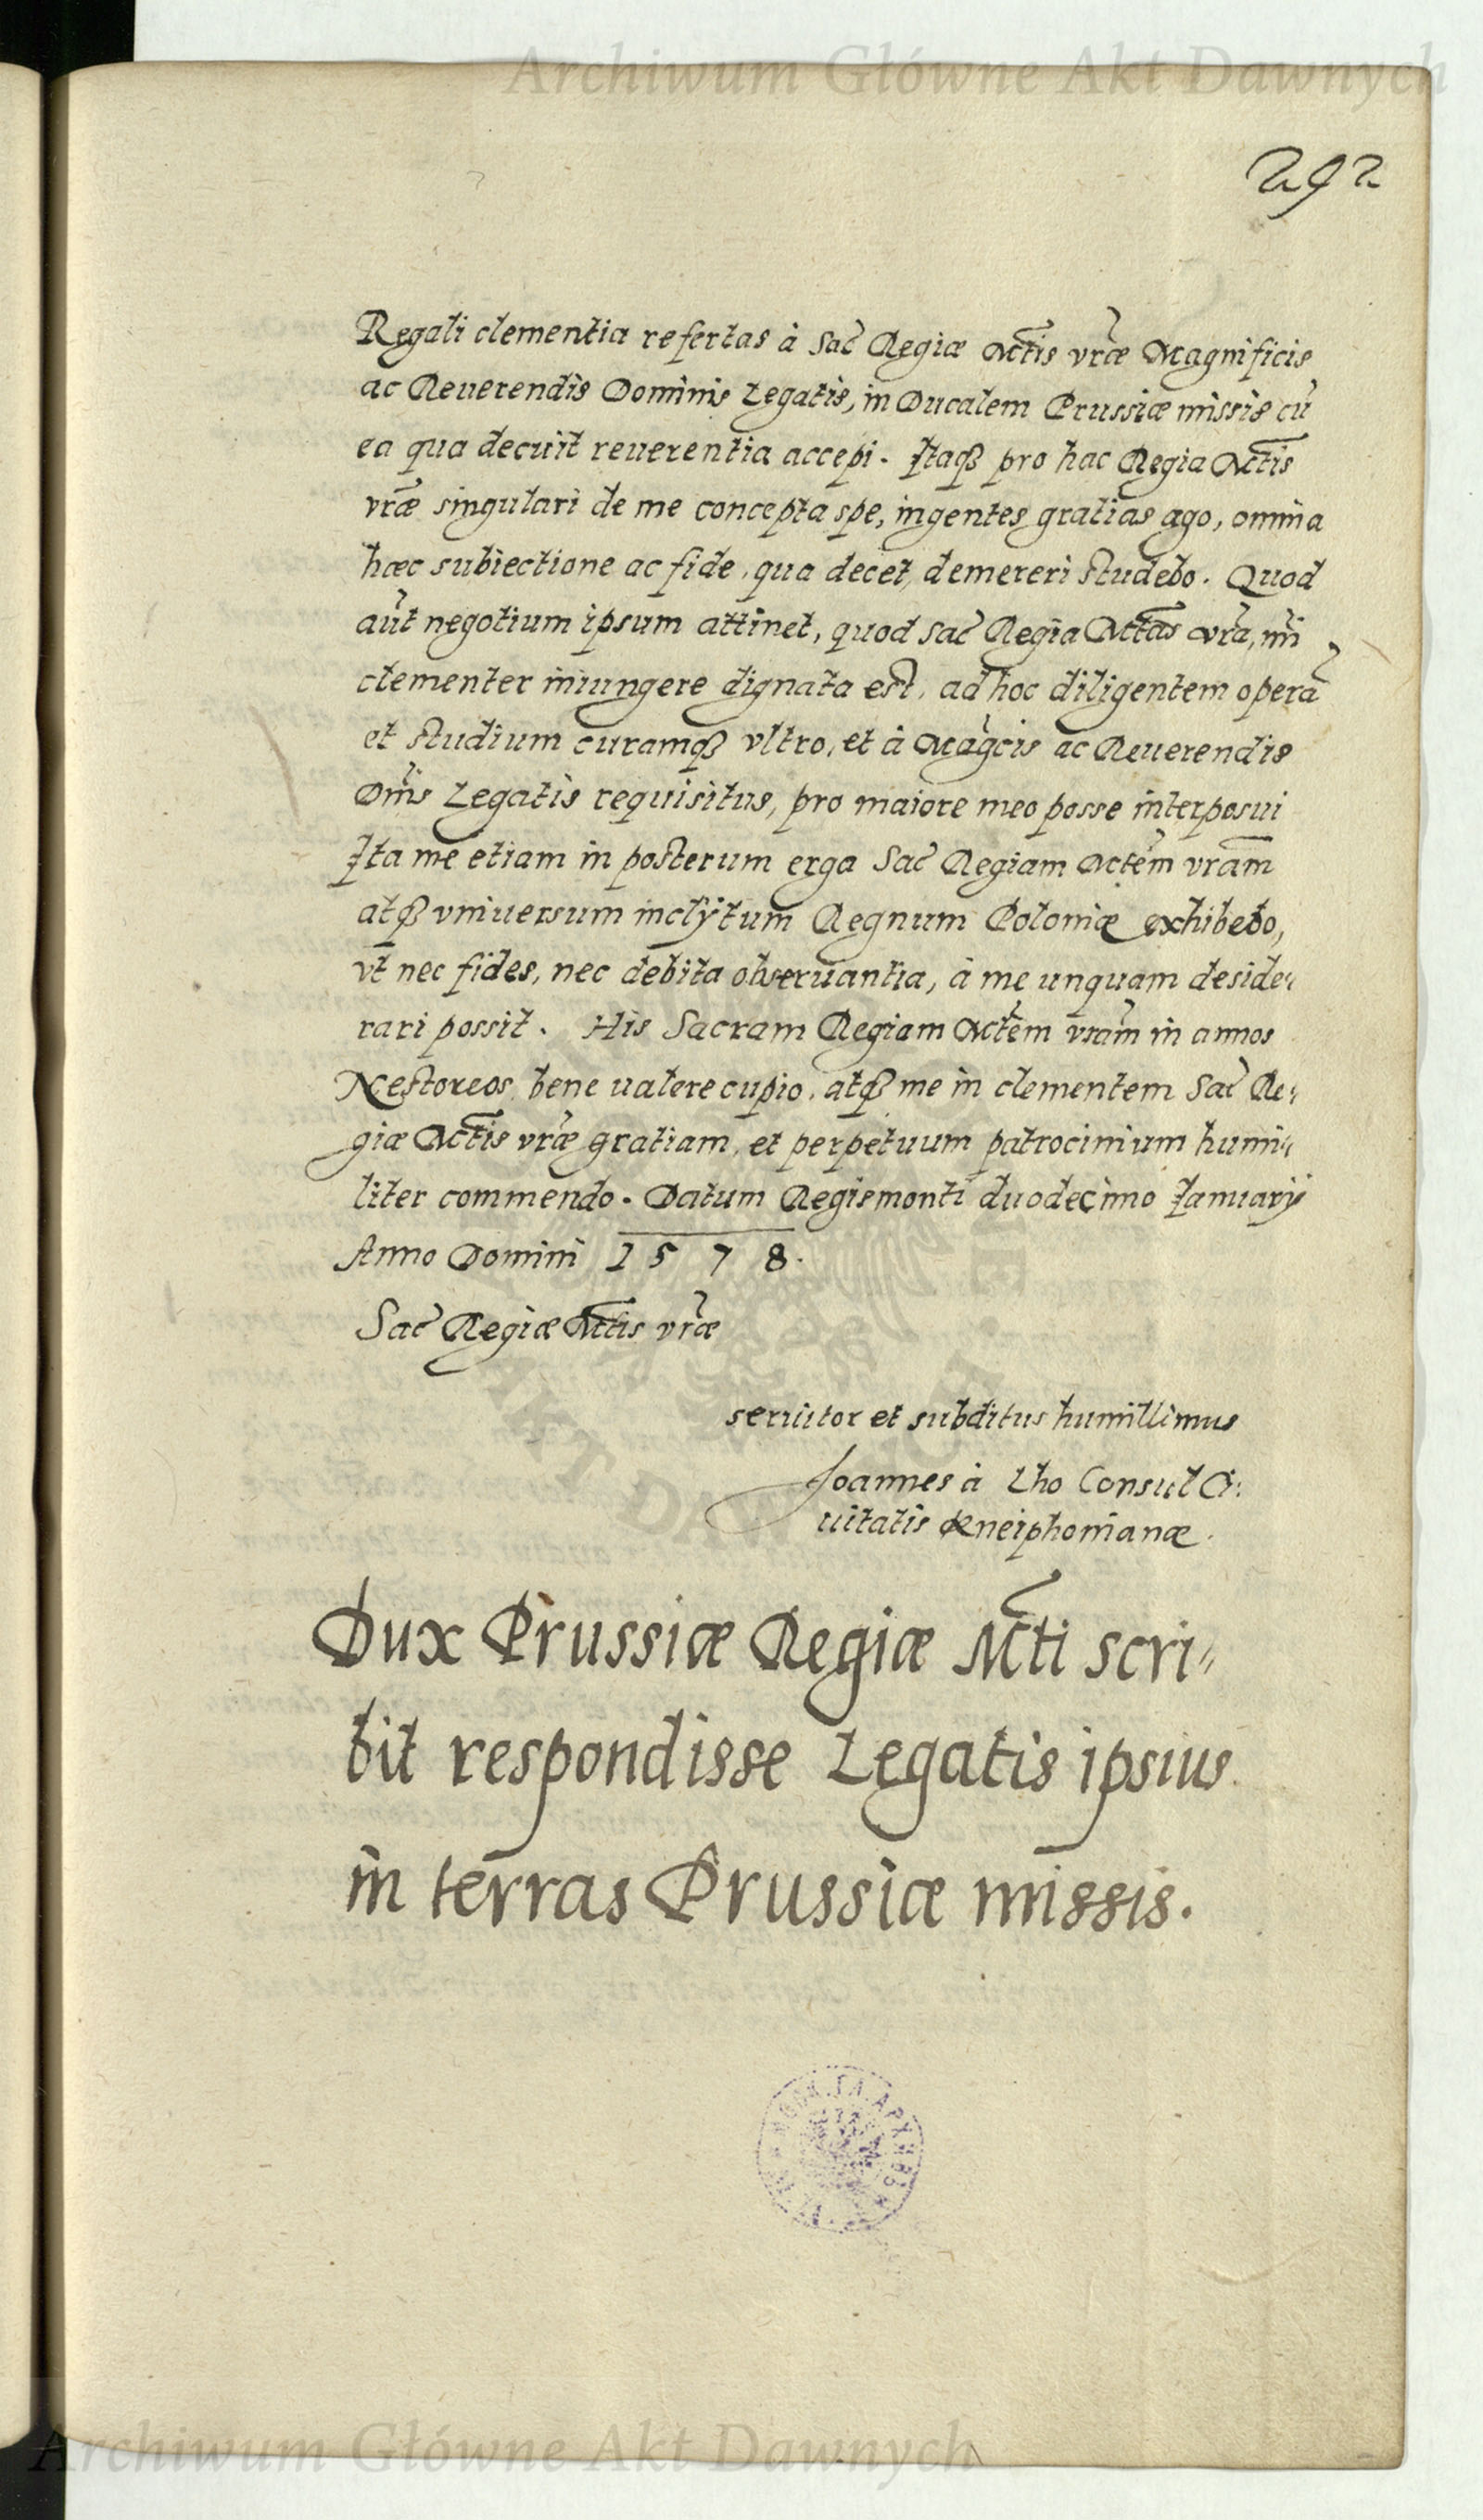 Archiwum Główne Akt Dawnych
292
Regali clementia refertas à Sac̃ Regiæ Mtis vræ Magnificis
ac Reuerendis Dominis Legatis, in Ducalem Prussiæ missis cũ
ea qua decuit reuerentia accepi. Itaqȝ pro hac Regia Mtis
vræ singulari de me concepta spe, ingentes gratias ago, omnia
hæc subiectione ac fide, qua decet, demereri studebo. Quod
aũt negotium ipsum attinet, quod Sac̃ Regia Mtas vra, mi
clementer iniungere dignata est, ad hoc diligentem operã
et studium curamqȝ vltro, et à Magcis ac Reuerendis
Dnis Legatis requisitus, pro maiore meo posse interposui
Ita me etiam in posterum erga Sac̃ Regiam Mtem vram
atqȝ vniuersum inclÿtum Regnum Poloniæ exhibebo,
vt nec fides, nec debita obseruantia, à me unquam deside,,
rari possit. His Sacram Regiam Mtem vram in annos
Nestoreos bene ualere cupio, atqȝ me in clementem Sac̃ Re,,
giæ Mtis vræ gratiam, et perpetuum patrocinium humi,,
liter commendo. Datum Regiemonti duodecimo Ianuarÿ
Anno Domini 1578.
Sac̃ Regiæ Mtis vræ
seruitor et subditus humillimus
Joannes à Lho Consul Ci,
uitatis Kneiphonianæ.
Dux Prussiæ Regiæ Mti scri,,
bit respondisse Legatis ipsius
in terras Prussiæ missis.
Archiwum Główne Akt Dawnych